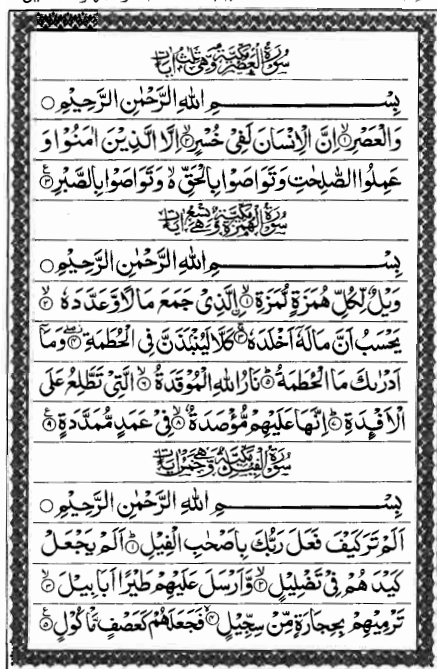 سُوْرَةُ الْعَصْرِ مَكِّيَّةٌ وَّهِىَ ثَلٰثُ اٰيَاتٍ
بِسْمِ اللهِ الرَّحْمٰنِ الرَّحِيْمِ ○
وَالْعَصْرِ ۙ﴿۱﴾ اِنَّ الْاِنْسَانَ لَفِىْ خُسْرٍ ۙ﴿۲﴾ اِلَّا الَّذِيْنَ اٰمَنُوْا وَ
عَمِلُوا الصّٰلِحٰتِ وَتَوَاصَوْا بِالْحَقِّ ۙ وَتَوَاصَوْا بِالصَّبْرِ ﴿۳﴾ ع
سُوْرَةُ الْهُمَزَةِ مَكِّيَّةٌ وَّهِىَ تِسْعُ اٰيَاتٍ
بِسْمِ اللهِ الرَّحْمٰنِ الرَّحِيْمِ ○
وَيْلٌ لِّكُلِّ هُمَزَةٍ لُّمَزَةِ ۙ﴿۱﴾ اِلَّذِىْ جَمَعَ مَالًا وَّعَدَّدَهٗ ۙ﴿۲﴾
يَحْسَبُ اَنَّ مَالَهٗٓ اَخْلَدَهٗ ۚ﴿۳﴾ كَلَّا لَيُنْۢبَذَنَّ فِى الْحُطَمَةِ ۖ﴿۴﴾ وَمَآ
اَدْرٰىكَ مَا الْحُطَمَةُ ؕ﴿۵﴾ نَارُ اللهِ الْمُوْقَدَةُ ۙ﴿۶﴾ الَّتِىْ تَطَّلِعُ عَلَى
الْاَفْـِٕدَةِ ؕ﴿۷﴾ اِنَّهَا عَلَيْهِمْ مُّؤْصَدَةٌ ۙ﴿۸﴾ فِىْ عَمَدٍ مُّمَدَّدَةٍ ﴿۹﴾ ع
سُوْرَةُ الْفِيْلِ مَكِّيَّةٌ وَّهِىَ خَمْسُ اٰيَاتٍ
بِسْمِ اللهِ الرَّحْمٰنِ الرَّحِيْمِ ○
اَلَمْ تَرَ كَيْفَ فَعَلَ رَبُّكَ بِاَصْحٰبِ الْفِيْلِ ؕ﴿۱﴾ اَلَمْ يَجْعَلْ
كَيْدَهُمْ فِىْ تَضْلِيْلٍ ۙ﴿۲﴾ وَّاَرْسَلَ عَلَيْهِمْ طَيْرًا اَبَابِيْلَ ۙ﴿۳﴾
تَرْمِيْهِمْ بِحِجَارَةٍ مِّنْ سِجِّيْلٍ ۙ﴿۴﴾ فَجَعَلَهُمْ كَعَصْفٍ مَّاْكُوْلٍ ﴿۵﴾ ع